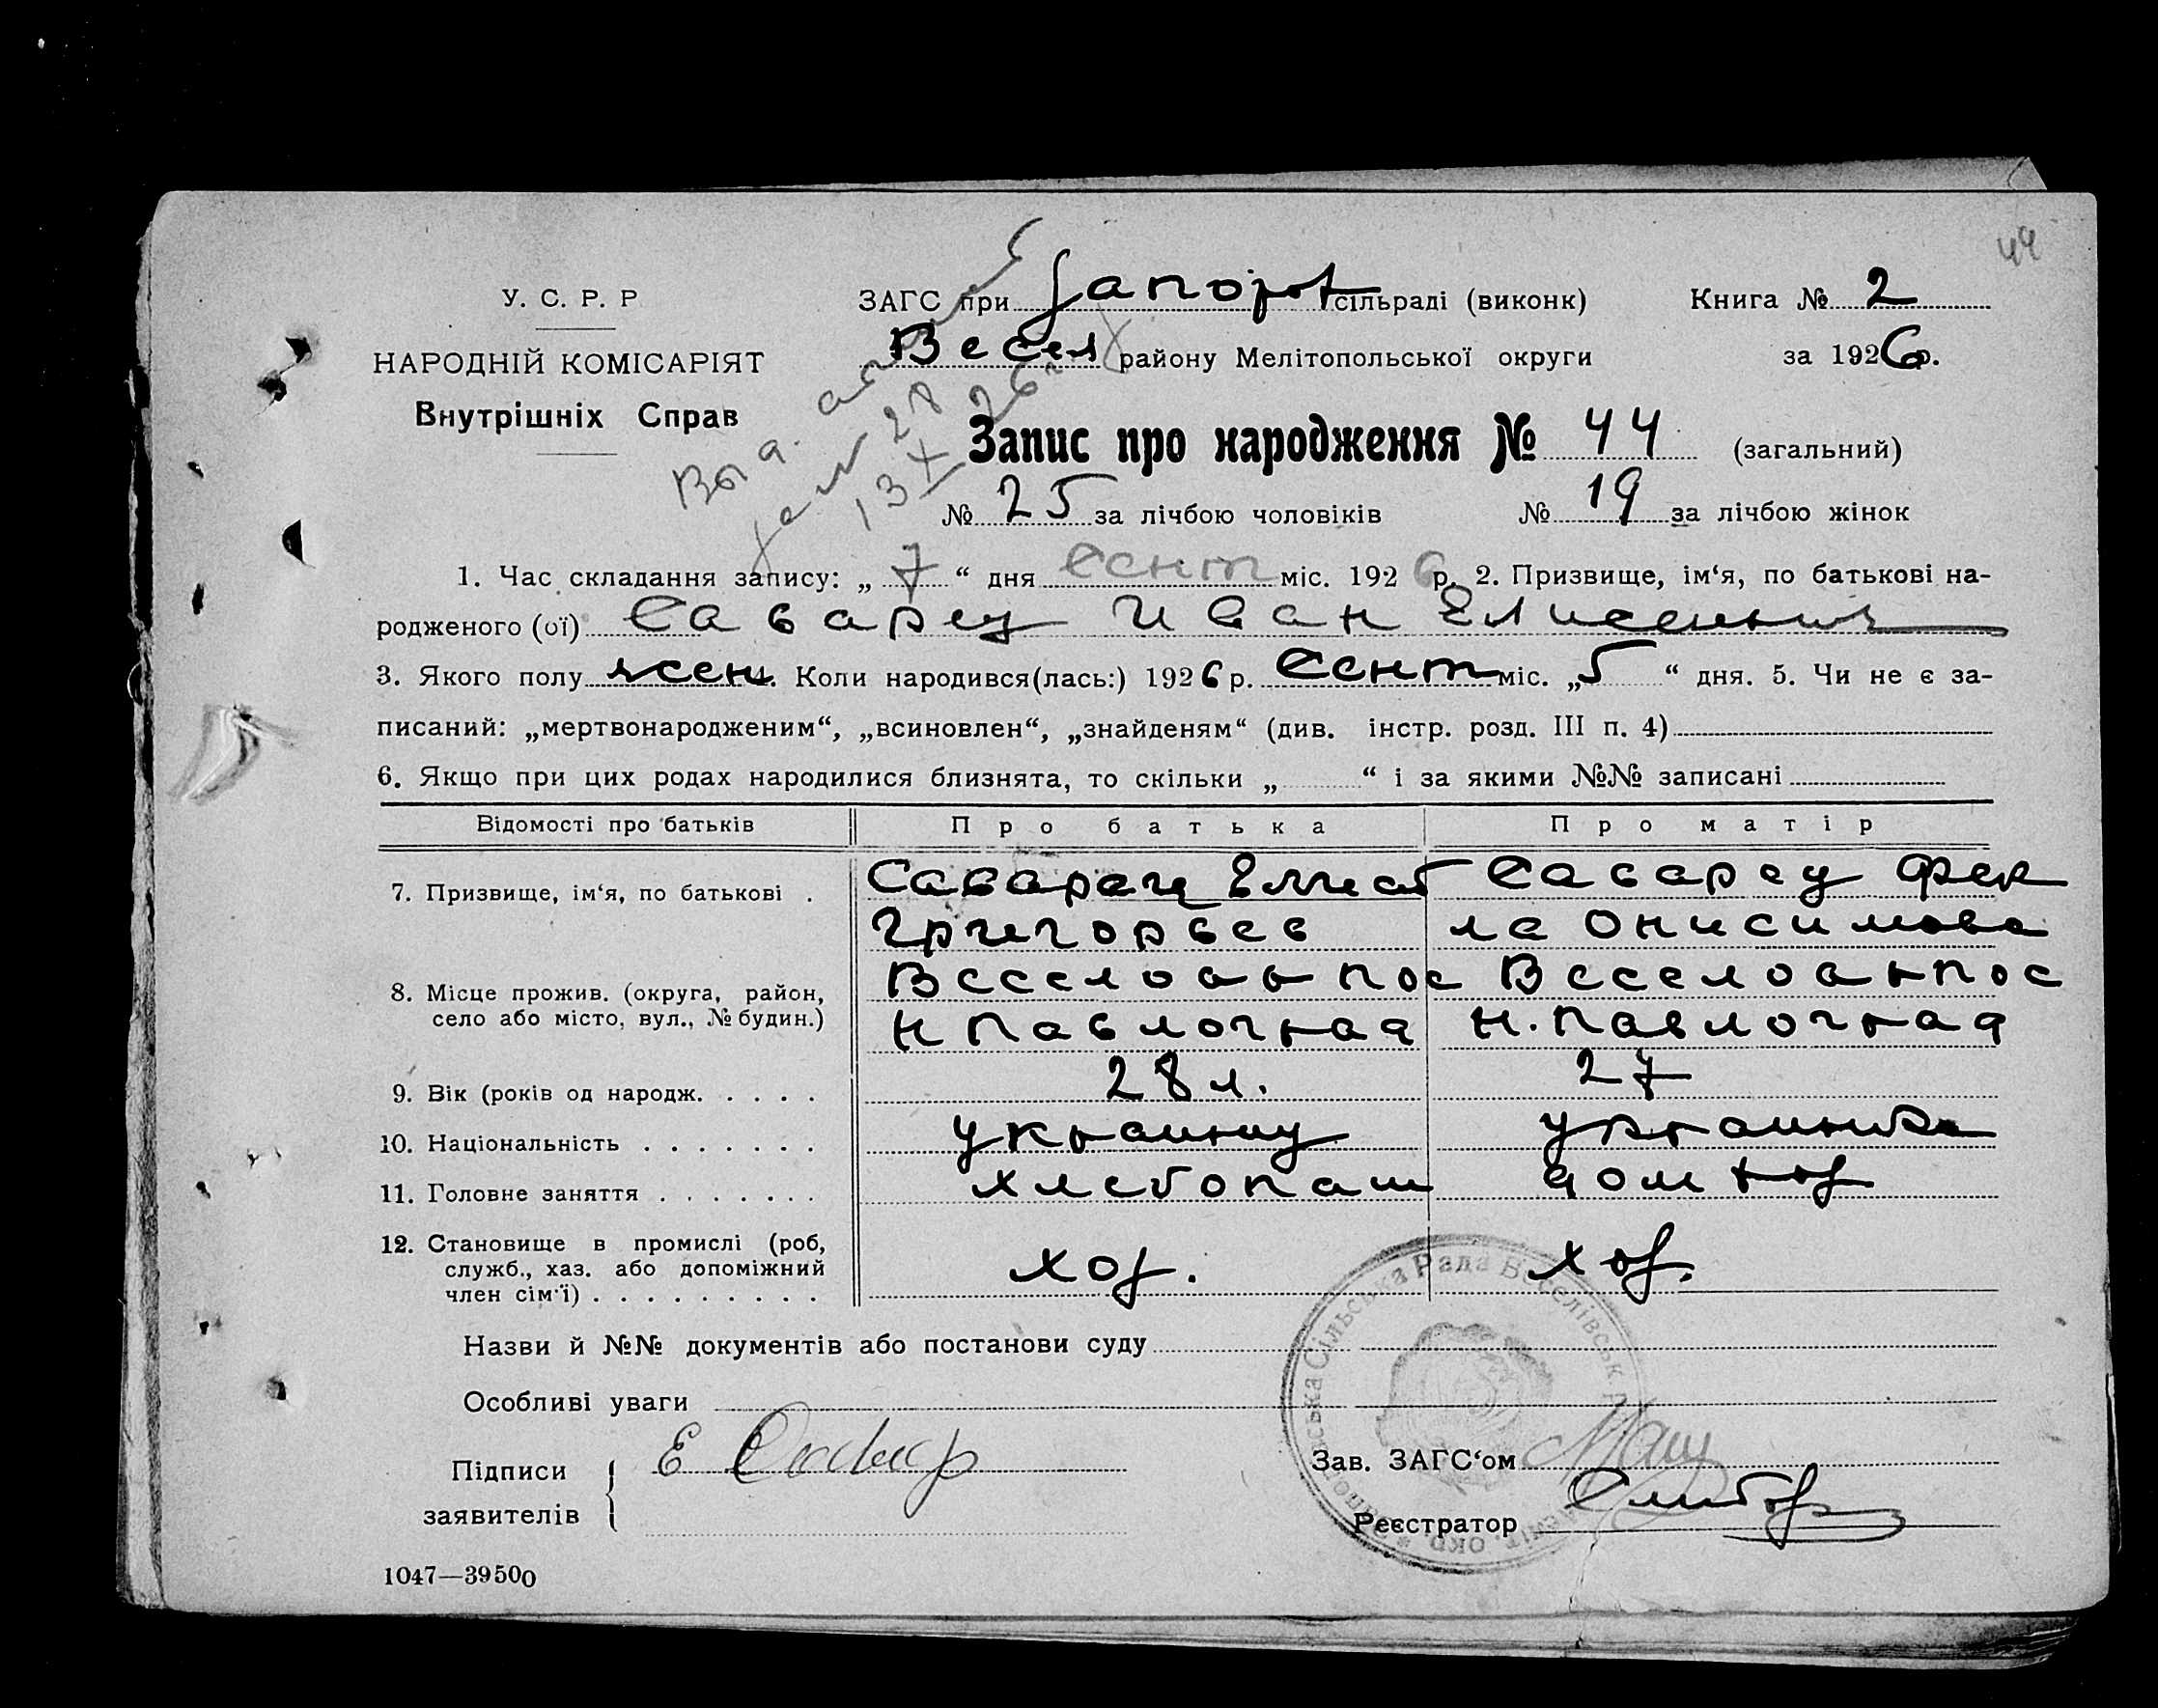 44
У. С. Р. Р
ЗАГС при Запорож сільраді (виконк)
Книга № 2
НАРОДНІЙ КОМІСАРІЯТ
Весел району Мелітопольської округи
за 1926р.
Внутрішніх Справ
Запис про народження № 44 (загальний)
№ 25 за лічбою чоловіків № 19 за лічбою жінок
1. Час складання запису: „ 7 “ дня сент міс. 1926 р. 2. Призвище, ім‘я, по батькові на-
родженого (ої) Саварец Иван Елисеевич
3. Якого полу жен. Коли народився(лась:) 1926 р. Сент міс. „5 “ дня. 5. Чи не є за-
писаний: „мертвонародженим“, „всиновлен“, „знайденям“ (див. інстр. розд. III п. 4)
6. Якщо при цих родах народилися близнята, то скільки „ “ і за якими №№ записані
Відомості про батьків Про батька Про матір
7. Призвище, ім‘я, по батькові . Саварец Саварец Фек
Григорьев ла Онисимова
8. Місце прожив. (округа, район, село або місто, вул., № будин.)
Н Павлоград Н. Павлоград
9. Вік (років од народж. . . . . 28 л. 27
10. Національність . . . . . . . украинец украинка
11. Головне заняття . . . . . . . хлебопаш дом хоз
12. Становище в промислі (роб, служб., хаз. або допоміжний член сім‘ї) . . . . . . . . . хоз. хоз.
Назви й №№ документів або постанови суду
Особливі уваги
Підписи заявителів
Зав. ЗАГС‘ом
Реєстратор
Сільська Рада Веселівськ
1047—39500